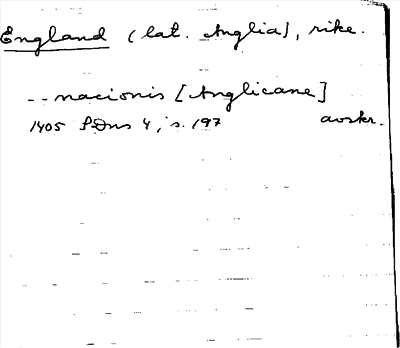 England (lat. Anglia), rike.
-- nacionis [Anglicane]
1405 SDns 4, s. 197 avskr.